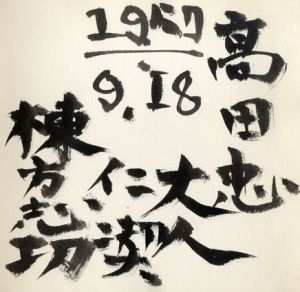 1957
9.18
高田忠
大人
仁、
棟方志功